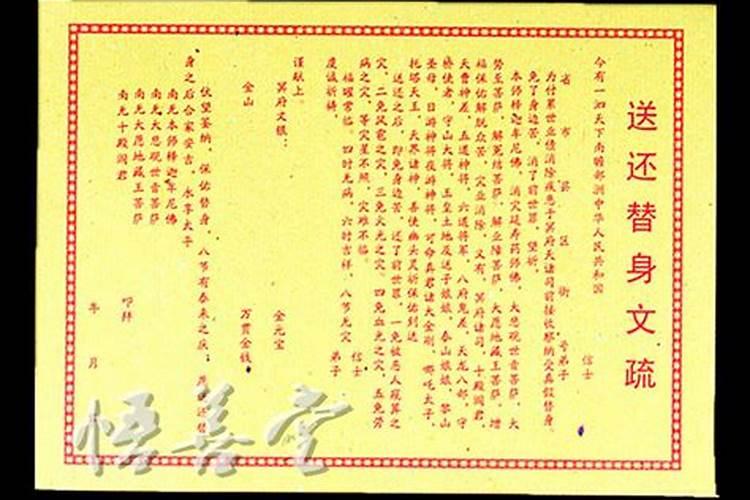 送还替身文疏
今有一泗天下南赡部洲中华人民共和国
省 市 县 区 街 号弟子 信士
为付累世业债消除疾患于冥府天诸司前接收缴纳受真假替身
免了身边苦，消了前世罪，望祈，
本师释迦牟尼佛，消灾延寿药师佛，大悲观世音菩萨，大
势至菩萨，解冤结菩萨，解业障菩萨，大愿地藏王菩萨，增
福保佑解脱众苦，灾业消除，又有，冥府诸司，十殿阎君，
天曹神差，五道神将，六道将军，八府鬼差，天龙八部，守
桥使者，守山大将，土皇土地及送子娘娘，泰山娘娘，黎山
圣母，日游神将夜游神将，司命真君诸大金刚，哪吒太子，
托塔天王，天界诸神，善使幽头灵祈保佑到送
送还之后，即免身边苦，还了前世罪，一免被恶人疑算之
灾，二免风雹之灾，三免火光之灾，四免血光之灾，五免劳
病之灾，等灾星不照，灾难不临。
福禄常临，四时无病，六时吉祥，八节无灾
虔诚祈祷， 弟子 信士
谨献上。
冥府文银： 金元宝
金山 万贯金钱
伏望鉴纳，保佑替身，八节有泰来之庆；送还替
身之后合家安吉，永享太平
南无本师释迦牟尼佛
南无大悲观世音菩萨
南无大愿地藏王菩萨
南无十殿阎君
叩拜
年 月
悟善堂